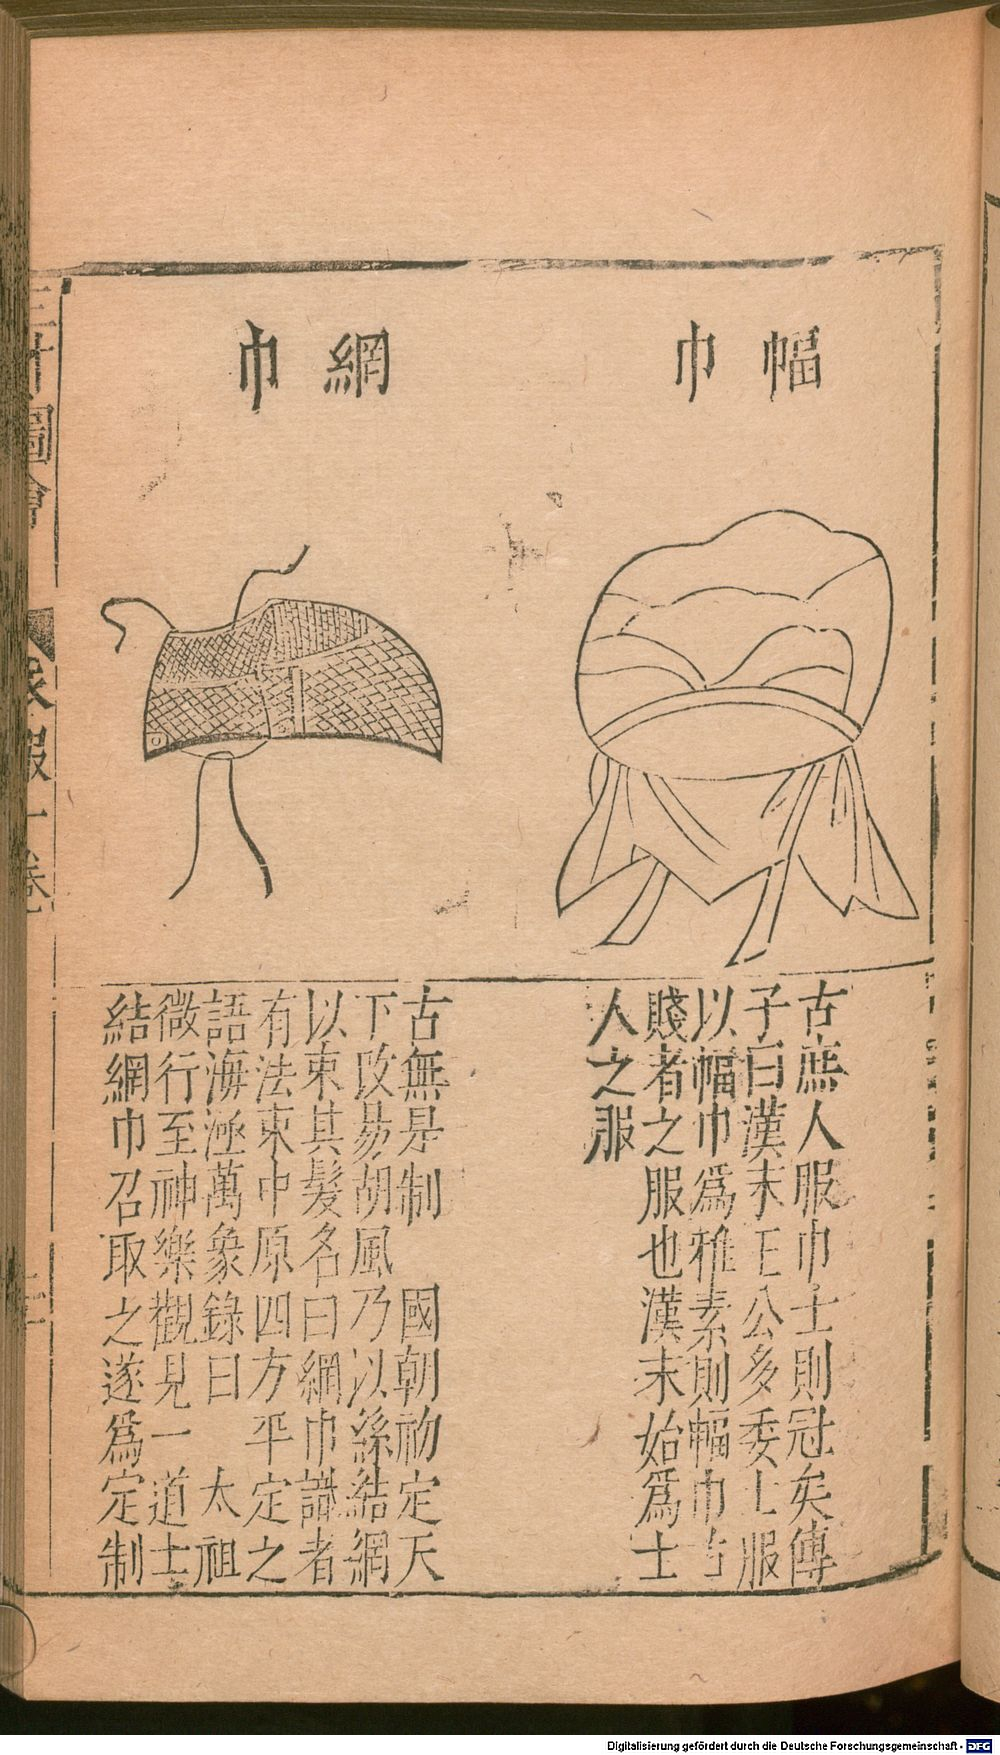 幅巾
古庶人服巾士則冠矣傳
子曰漢末王公多委士服
以幅巾爲雅素則幅巾古
賤者之服也漢末始爲士
人之服
網巾
古無是制　國朝初定天
下改易胡風乃以絲結網
以束其髮名曰網巾識者
有法束中原四方平定之
語海涵萬象錄曰　太祖
微行至神樂觀見一道士
結網巾召取之遂爲定制
三才圖會
衣服一卷
Digitalisierung gefördert durch die Deutsche Forschungsgemeinschaft - DFG